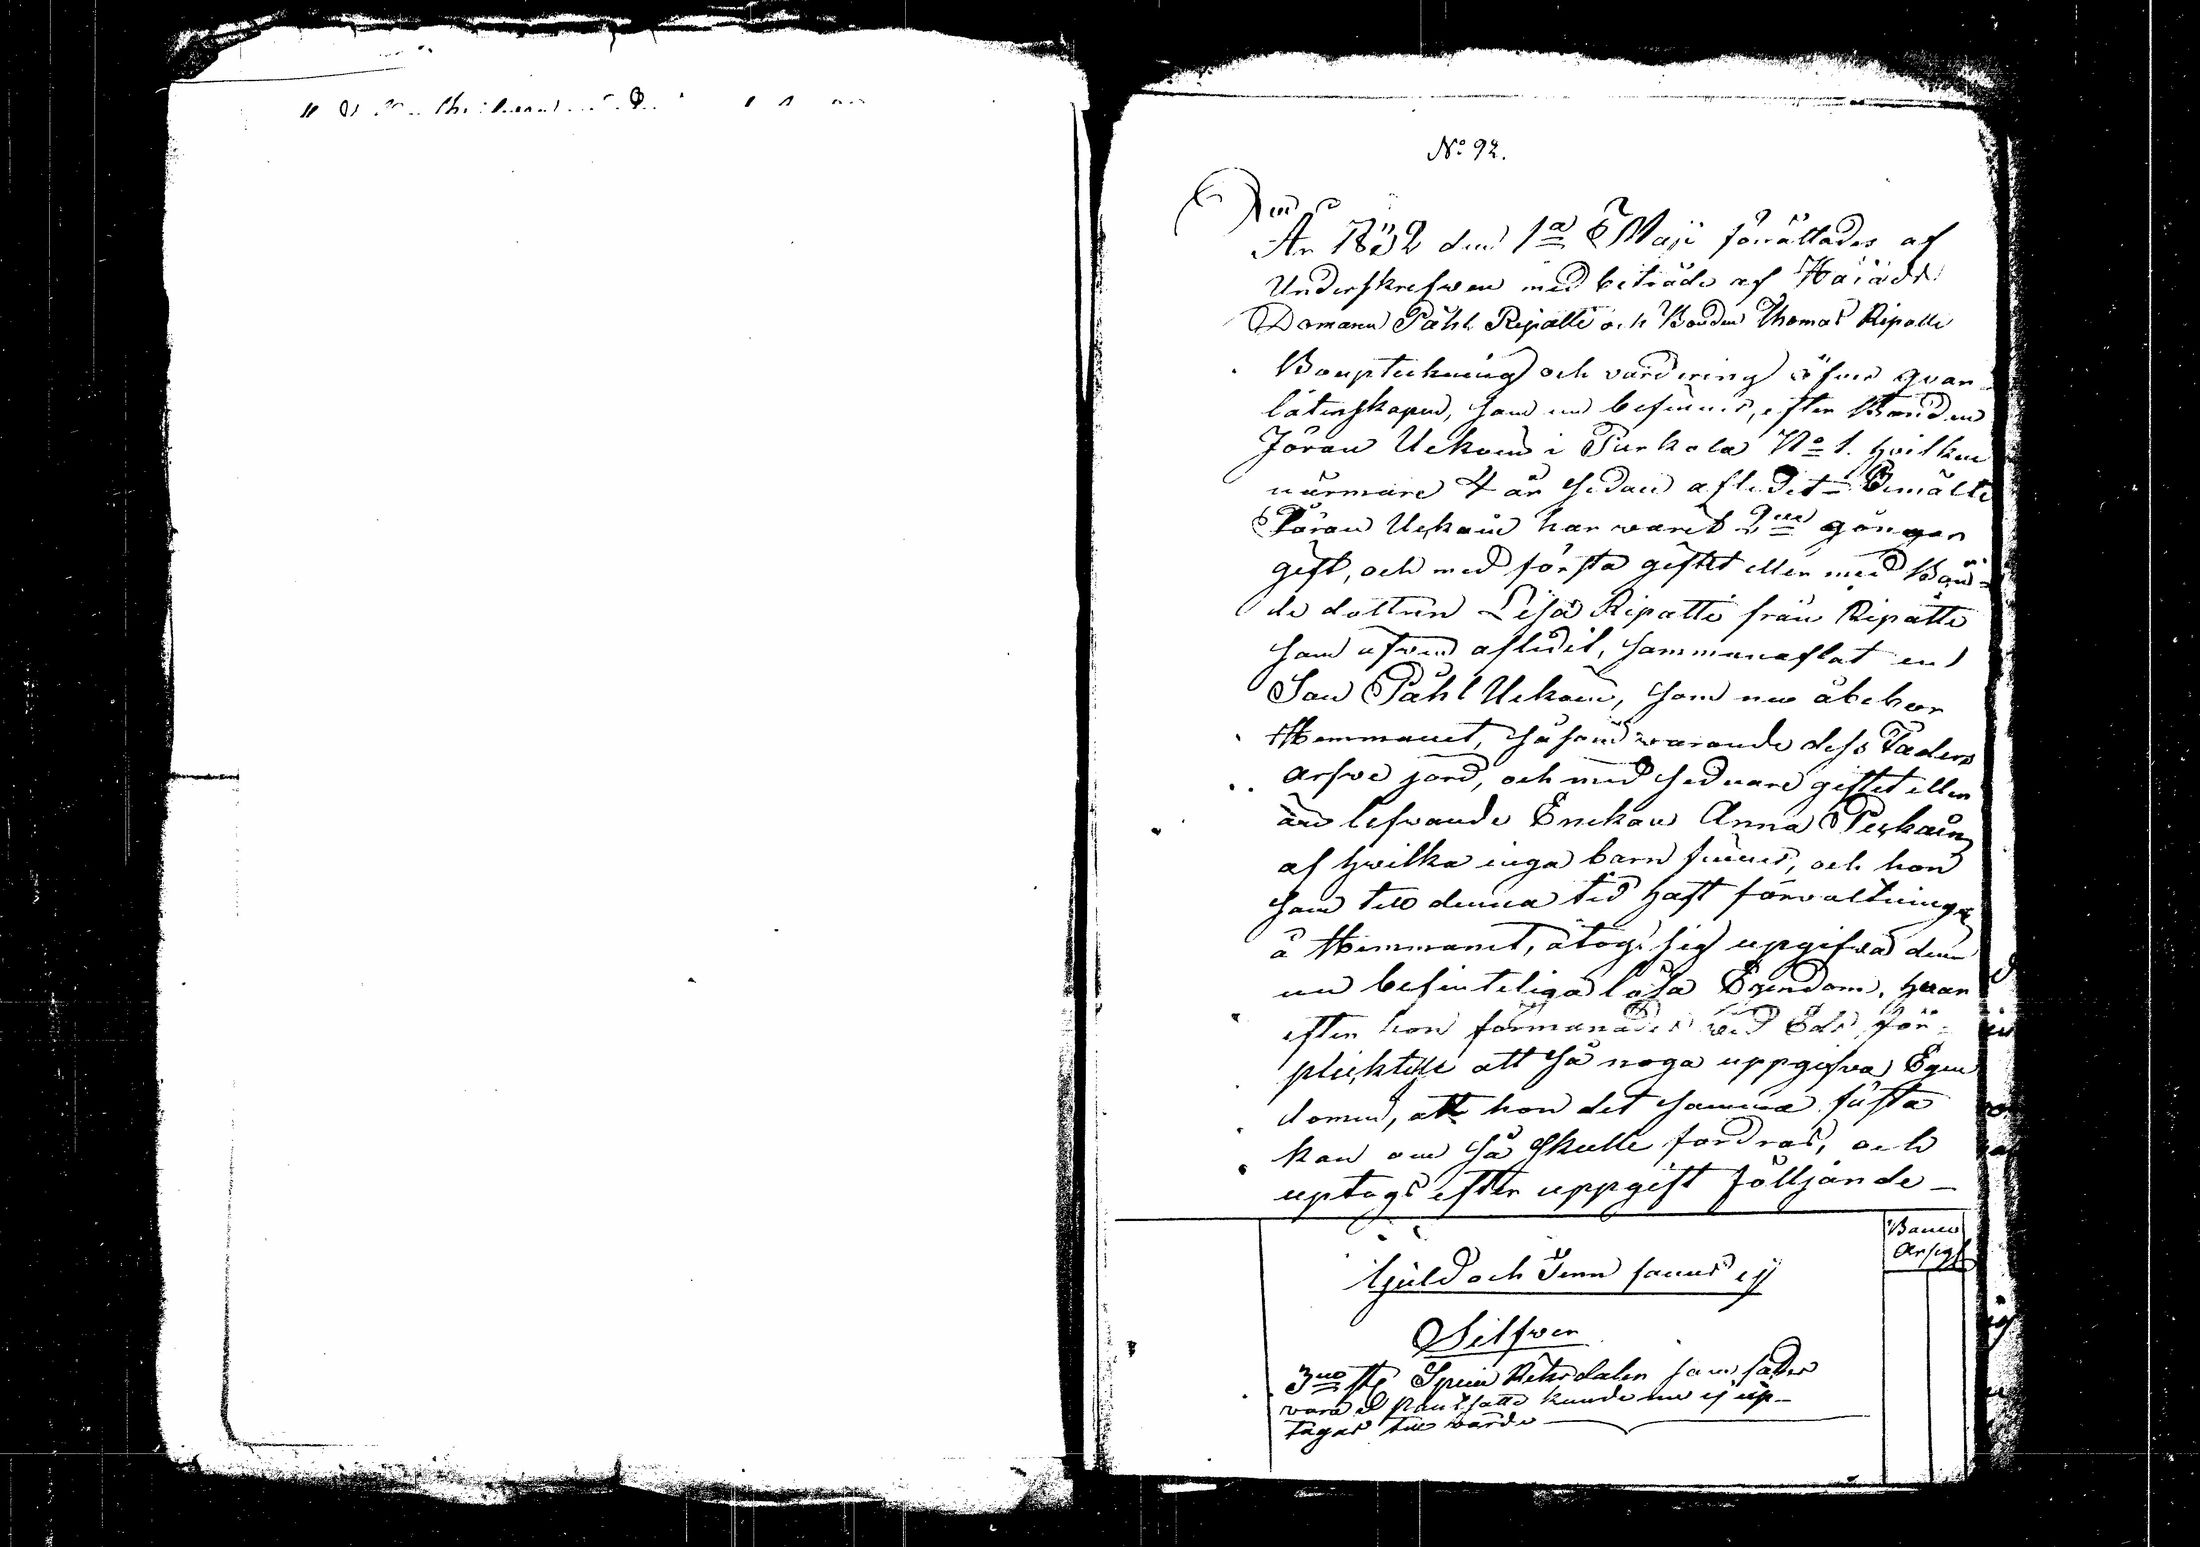 No 92.
År 1832 den 1a Maji förrättades af
Underskrefwen med biträde af Härads
Domaren Påhl Ripatti och Bonden Thomas Ripatti
Bouptekning och värdering öfwer qvar-
låtenskapen, som nu befinnes, efter Bonden
Jöran Uskain i Purkola No 1. hvilken
närmare 4 år sedan afledit - Bemälte
Jöran Uskain har warit 2ne gånger
gift, och med första giftet eller med Bon-
de dottren Lisa Ripatti från Ripatti
som äfwen afledit, sammanaflat en
Son Påhl Uskain, som nu åbebor
Hemmanet, såsom warande dess Faders
arfwe jord, och med sednare giftet eller
än lefwande Enckan Anna Peskain
af hwilka inga barn finnes, och hon
som till denna tid haft förvaltningen
å Hemmanet, åtog sig upgifva den
nu befinteliga lösa Egendom, hvar
efter hon förmanades wid Eds för-
plicktelse att så noga uppgifva Egen
domen, att hon det samma fästa
kan om så skulle fordras, och
uptogs efter uppgift fölljande -
Banco
Assig
Guld och Tenn fanns ej
Silfwer
3ne st Specie Riksdaler som säges
vara pantsatte kunde nu ej up-
tagas till wärde